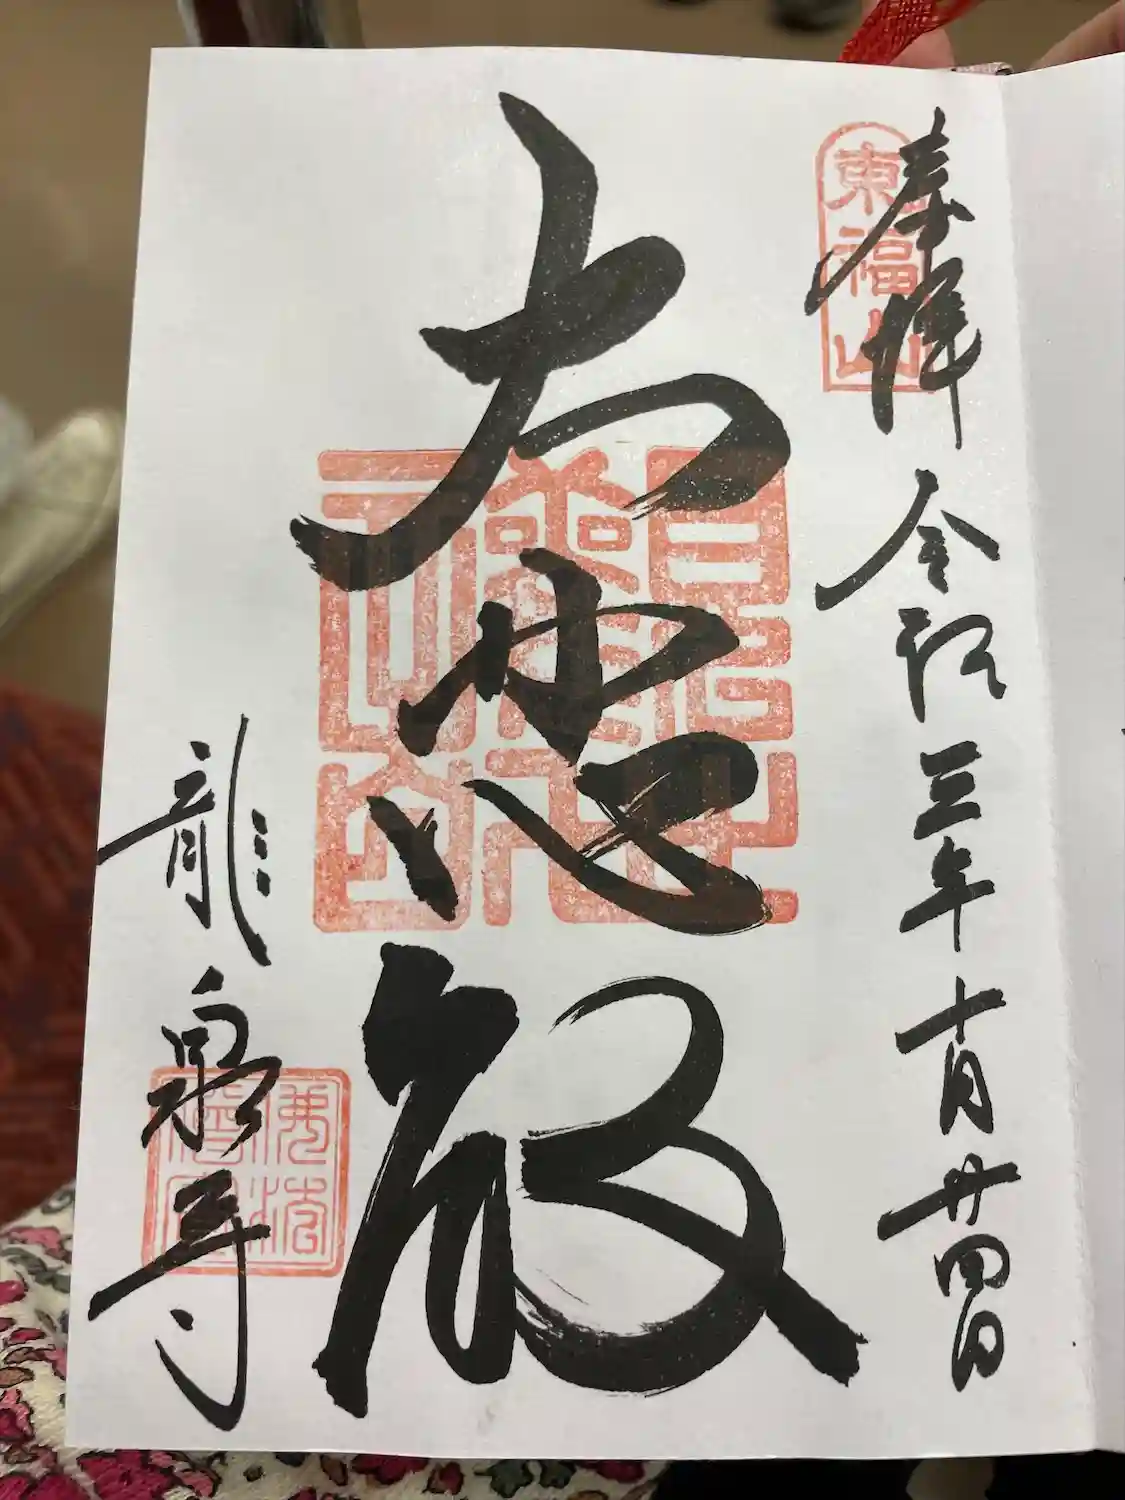 奉拝 令和三年十月廿四日
東福山
大悲殿
龍泉寺